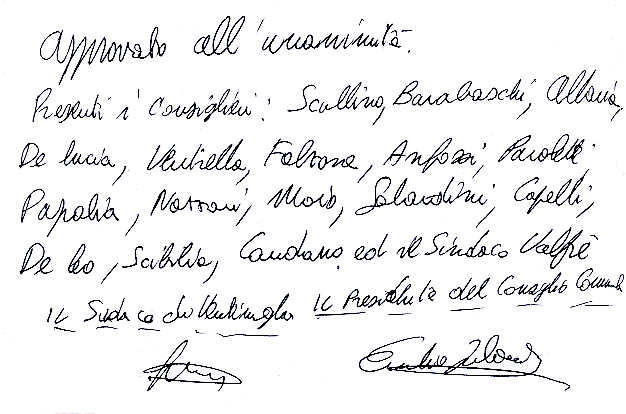 Approvato all'unanimità.
Presenti i Consiglieri: Scullino, Barabaschi, Albano,
De Lucia, Ventrella, Falzone, Anfossi, Paroletti
Papalia, Nazzari, Moio, Galardini, Capelli,
De Leo, Scibilia, Candiano ed il Sindaco Valfrè
Il Sindaco di Ventimiglia Il Presidente del Consiglio